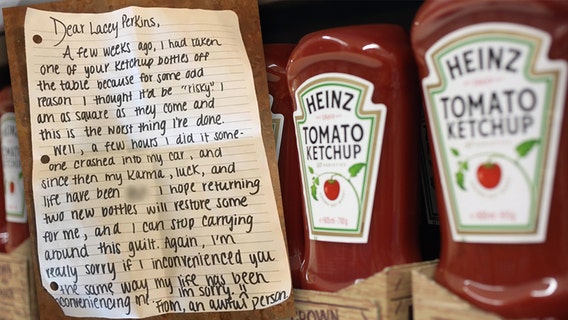 Dear Lacey Perkins,
A few weeks ago, I had taken
one of your ketchup bottles off
the table because for some odd
reason I thought it'd be "risky" I
am as square as they come and
this is the worst thing I've done.
Well, a few hours I did it some-
one crashed into my car, and
since then my karma, luck, and
life have been
I hope returning
two new bottles will restore some
for me, and I can stop carrying
around this guilt. Again, I'm
really sorry if I inconvenienced you
the same way my life has been
inconveniencing me. I'm sorry!!
From, an awful person
HEINZ
TOMATO
KETCHUP
HEINZ
TOMATO
KETCHUP